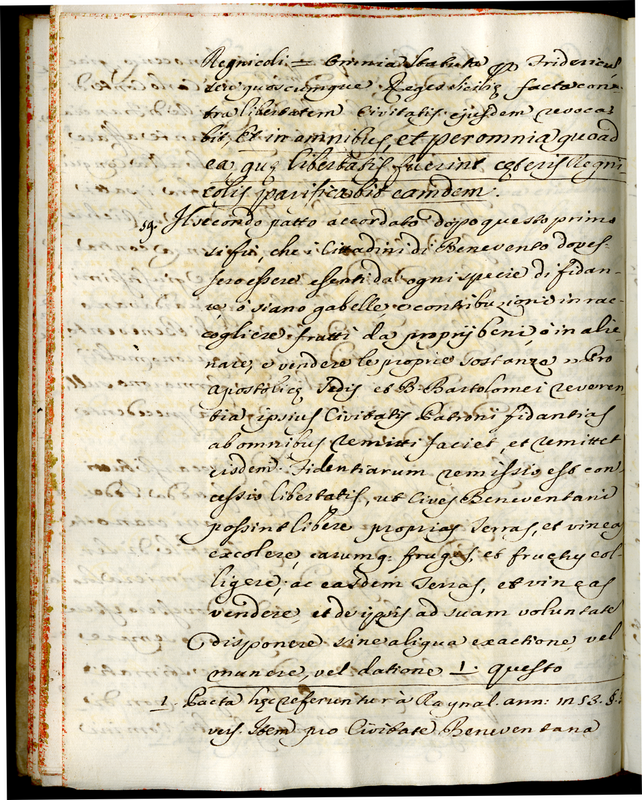 Regnicoli = Omnia Statuta Fridericus
seu quoscumque Reges Sicilię facta con=
tra libertatem Civitatis ejusdem revoca=
bit, Et in omnibus, et per omnia quoad
ea, quę libertatis fuerint cęteris Regni
colis parificabit eamdem.
54. Il secondo patto accordato dopo questo primo
si fu, che i Cittadini di Benevento doves=
sero essere esenti da ogni specie di fidan=
ze, o siano gabelle, o contribuzioni in rac=
cogliere frutti da proprj beni, o in alie=
nare, e vendere le proprie sostanze Pro
Apostolicę Sedis et B. Bartolomei reveren
tia ipsius Civitatis Patroni fidantias
ab omnibus remitti faciet, et remittet
eisdem. Fidentiarum remissio est con=
cessio libertatis, ut Cives Beneventani
possint libere proprias Terras, et vineas
excolere, earumq: fruges, et fructus col=
ligere, ac easdem Terras, et vineas
vendere, et de ipsis ad suam voluntate
disponere sine aliqua exactione, vel
munere, vel datione 1. questo
1. Pacta hęc referuntur à Raynal. ann. 1253. §.
vers. Item pro Civitate Beneventana